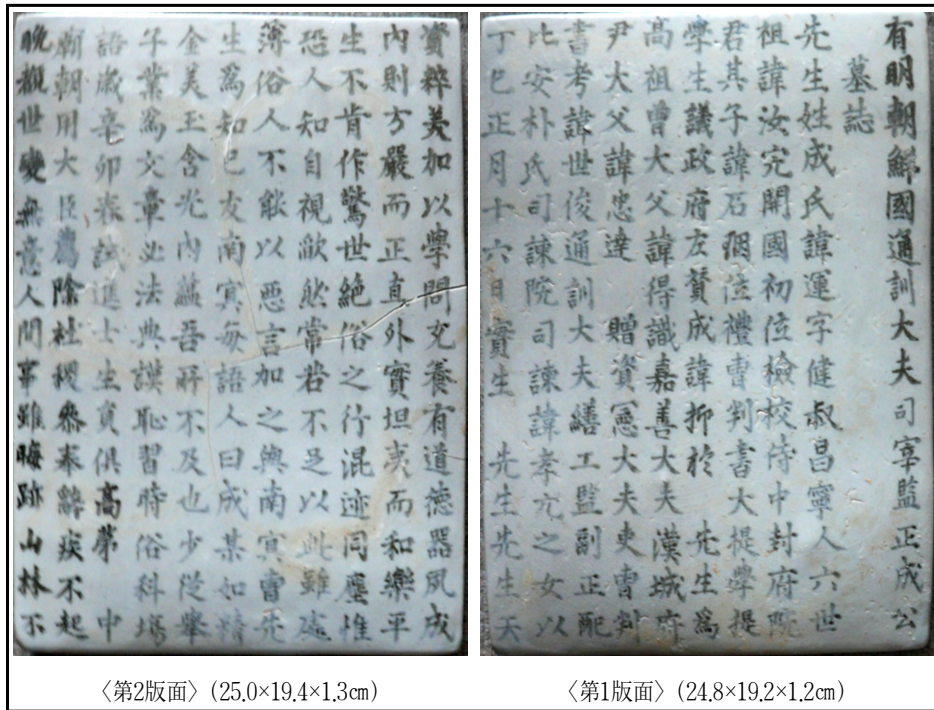 有明朝鮮國通訓大夫司宰監正成公
墓誌
先生姓成氏諱運字健叔昌寧人六世
祖諱汝完開國初位檢校侍中封府院
君其子諱石珚位禮曹判書大提學提
學生議政府左贊成諱抑於 先生爲
高祖曾大父諱得識嘉善大夫漢城府
尹大父諱忠達 贈資憲大夫吏曹判
書考諱世俊通訓大夫繕工監副正配
比安朴氏司諫院司諫諱孝元之女以
丁巳正月十六日實生 先生先生天
〈第1版面〉(24.8×19.2×1.2㎝)
資粹美加以學問充養有道德器夙成
內則方嚴而正直外實坦夷而和樂平
生不肯作驚世絶俗之行混迹同塵惟
恐人知自視歉然常若不足以此雖處
簿俗人不能以惡言加之與南冥曺先
生爲知己友南冥每語人曰成某如精
金美玉含光內蘊吾所不及也少從擧
子業爲文章必法典謨恥習時俗科場
語歲辛卯春試進士生員俱高第 中
廟朝用大臣薦除社稷參奉辭疾不起
晩觀世變無意人間事雖晦跡山林不
〈第2版面〉(25.0×19.4×1.3㎝)